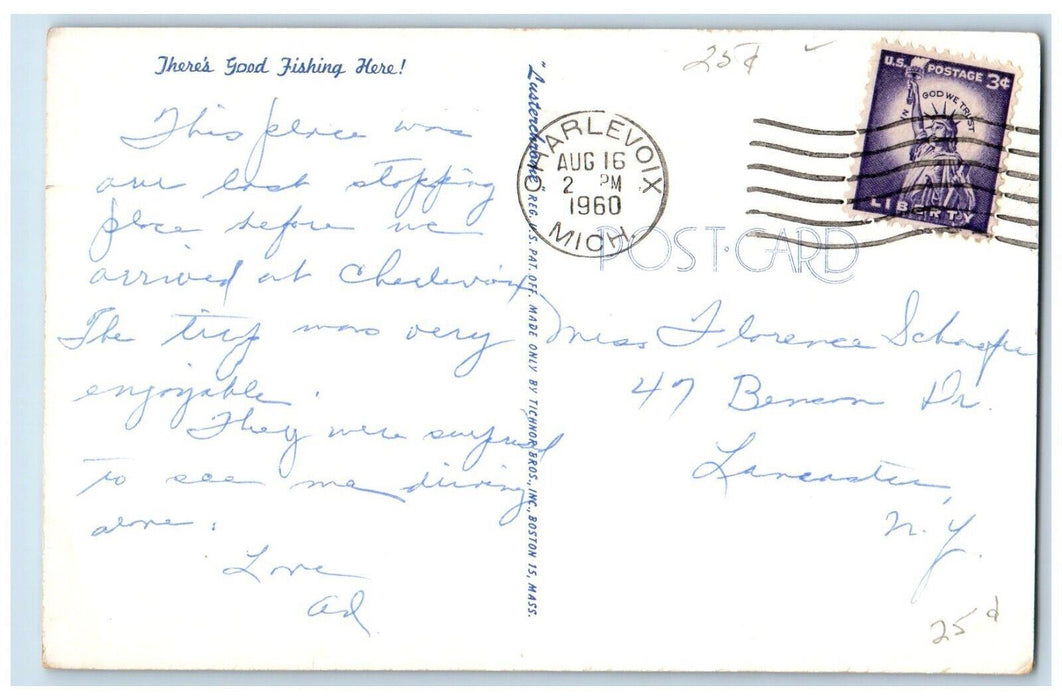 There's Good Fishing Here!
This place was
our last stopping
place before we
arrived at Charlevoix
The trip was very
enjoyable.
They were surprised
to see me driving
alone.
Love
Ad
"Lusterchrome" REG. U.S. PAT. OFF. MADE ONLY BY TICHNOR BROS., INC., BOSTON 15, MASS.
25¢
CHARLEVOIX
AUG 16
2 PM
1960
MICH.
U.S. POSTAGE 3¢
IN GOD WE TRUST
LIBERTY
POST CARD
Miss Florence
47 Benson Dr.
Lancaster,
N.Y.
25¢